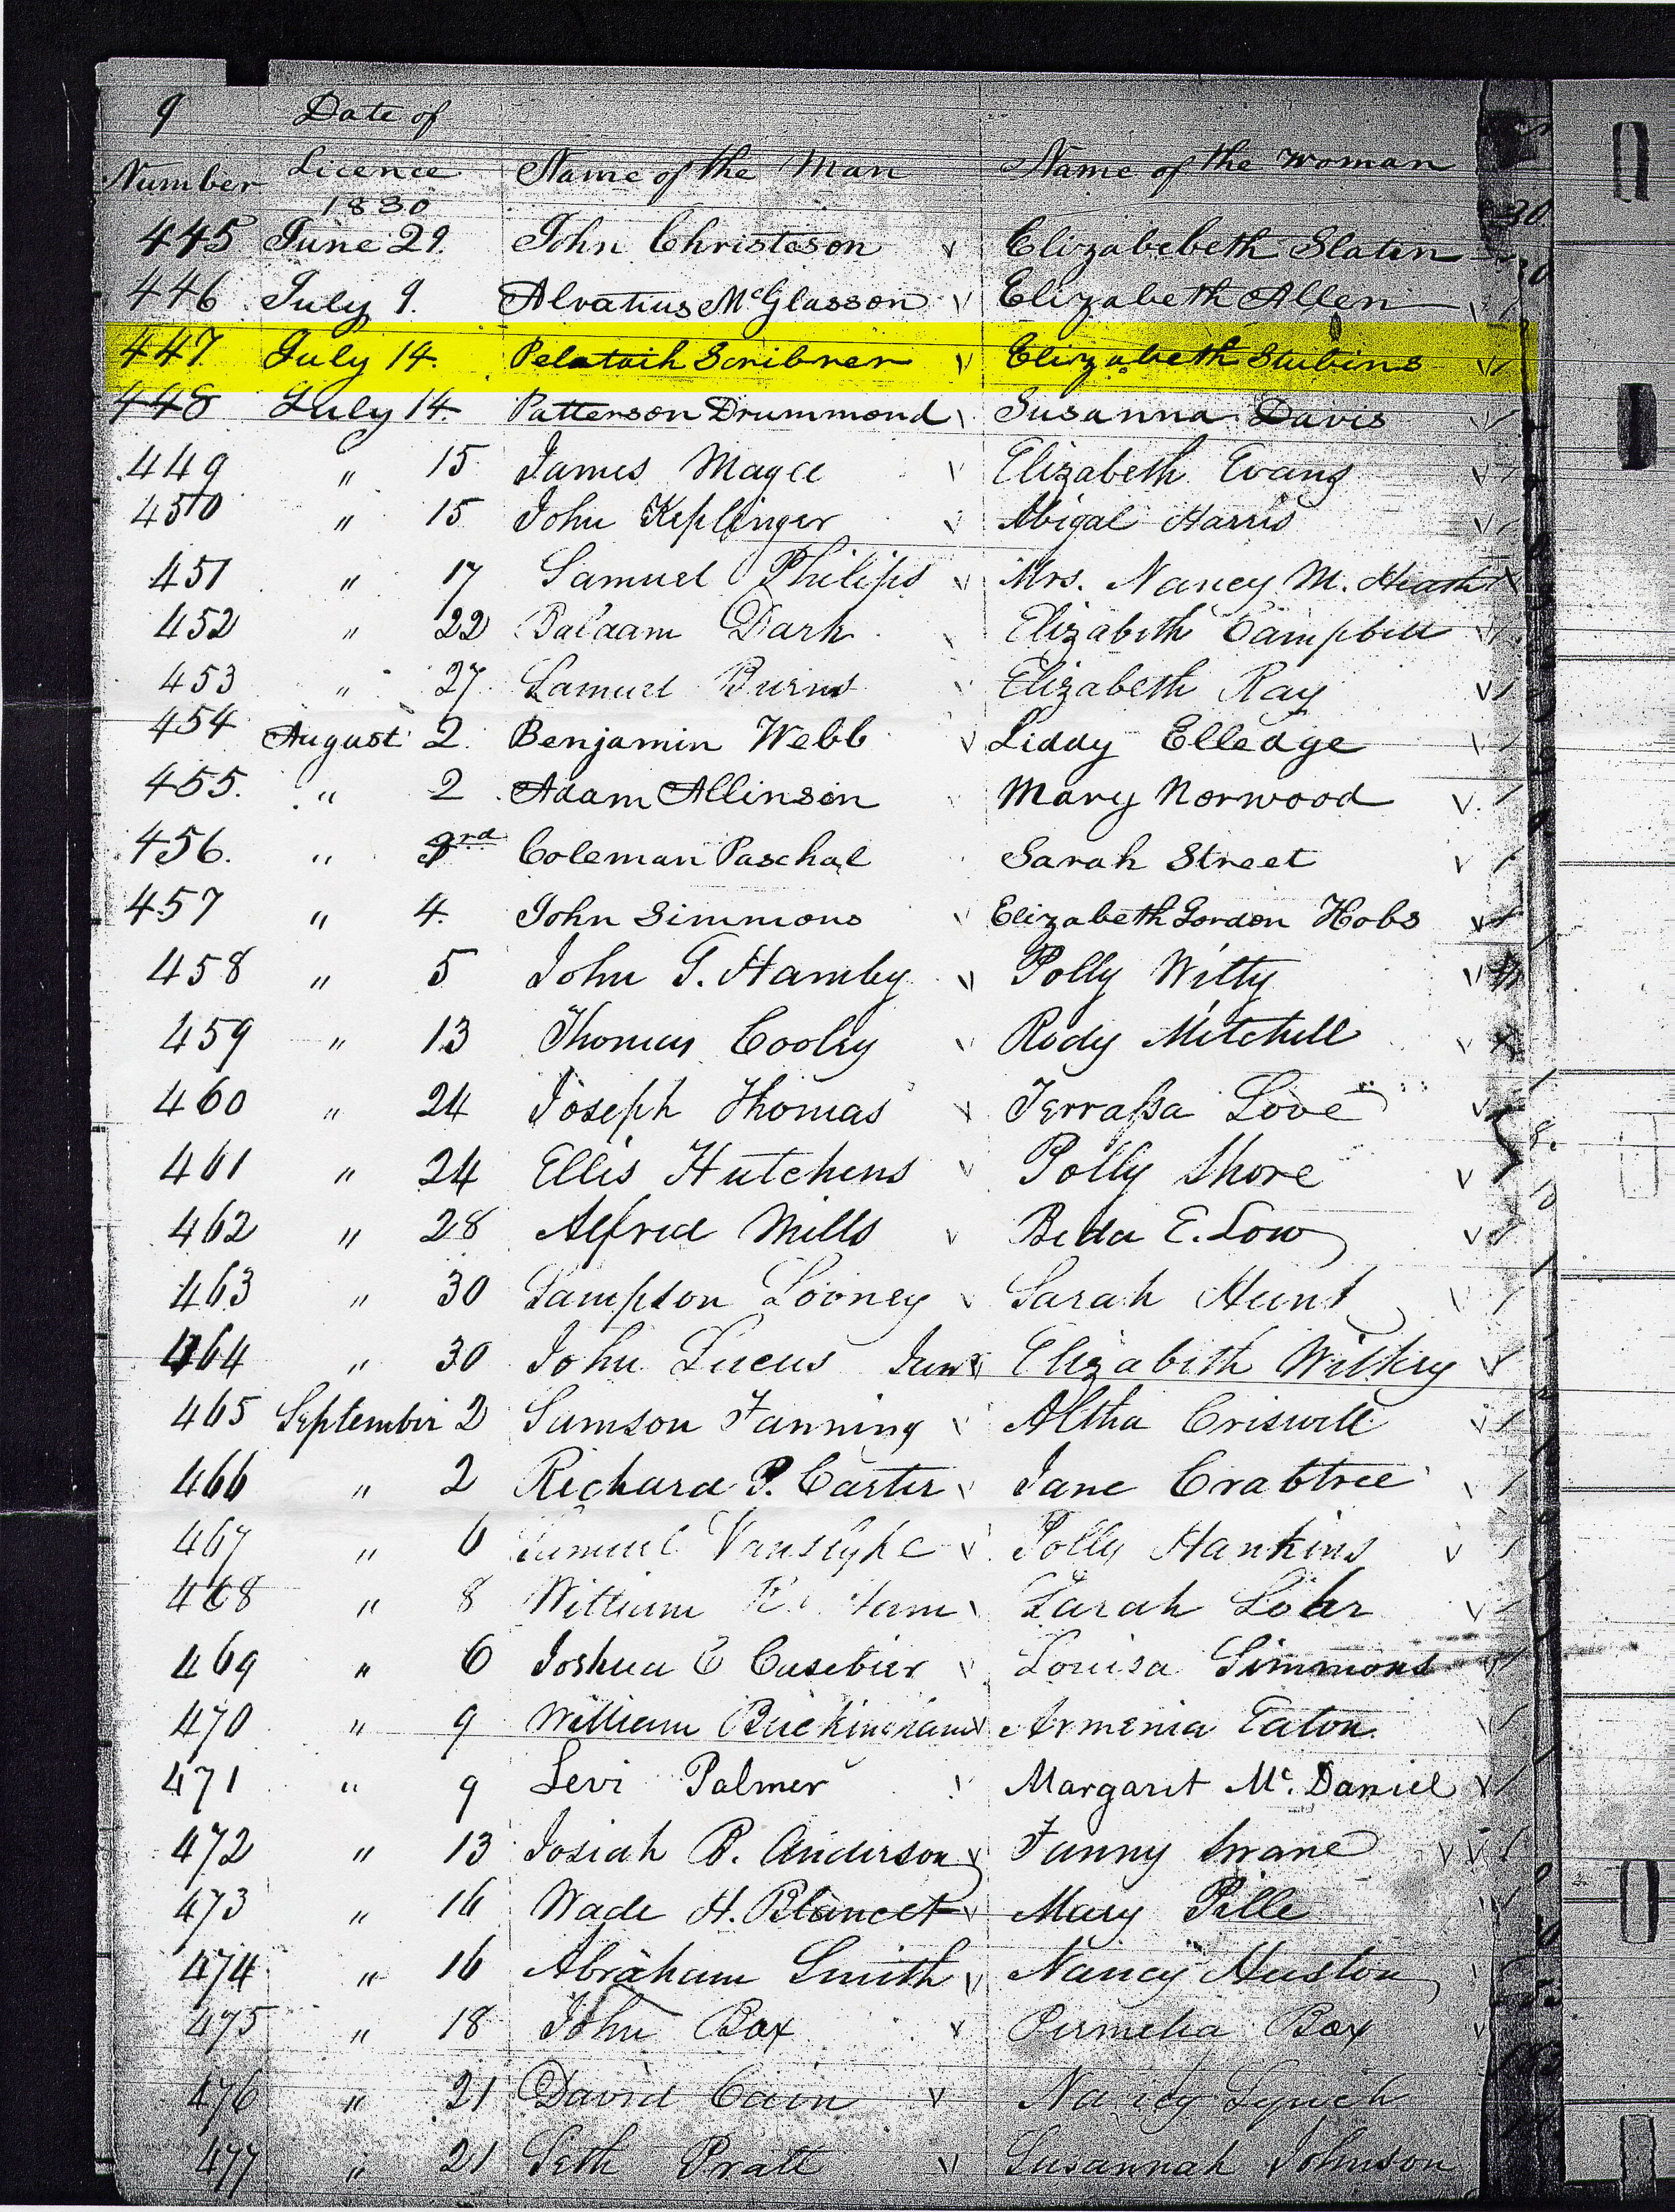 9 Date of
Number Licence Name of the Man Name of the Woman
1830
445 June 29. John Christeson Elizabebeth Slaten
446 July 9. Alvatius McGlasson Elizabeth Allen
447 July 14. Pelataih Scribner Elizabeth Stubins
448 July 14. Patterson Drummond Susanna Davis
449 " 15 James Magee Elizabeth Evans
450 " 15 John Keplinger Abigal Harris
451 " 17 Samuel Philips Mrs. Nancy M. Heath
452 " 22 Balaam Dark Elizabeth Campbell
453 " 27 Samuel Burns Elizabeth Ray
454 August 2. Benjamin Webb Liddy Elledge
455. " 2 Adam Allinson Mary Norwood
456. " 3rd Coleman Paschal Sarah Street
457 " 4. John Simmons Elizabeth Gordon Hobs
458 " 5 John G. Hamby Polly Witty
459 " 13 Thomas Cooley Rody Mitchell
460 " 24 Joseph Thomas Terrassa Love
461 " 24 Ellis Hutchens Polly Shore
462 " 28 Alfred Mills Beda E. Low
463 " 30 Sampson Looney Sarah Hunt
464 " 30 John Lucus Junr Elizabeth
465 September 2 Samson Fanning Altha Criswell
466 " 2 Richard P. Carter Jane Crabtree
467 " 6 Samuel Polly Hankins
468 " 8 William Sarah Lohr
469 " 6 Joshua C Casebier Louisa Simmons
470 " 9 William Buckingham Armenia Eaton.
471 " 9 Levi Palmer Margaret Mc.Daniel
472 " 13 Josiah B. Anderson Fanny
473 " 16 Wade H. Blancet Mary Pille
474 " 16 Abraham Smith Nancy Huston
475 " 18 John Box Permelia Box
476 " 21 David Cain Nancy Lynch
477 " 21 Seth Pratt Susannah Johnson